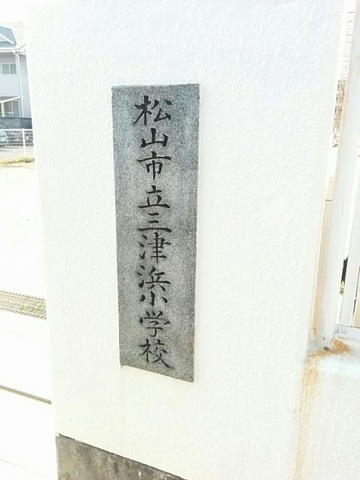 松山市立三津浜小学校